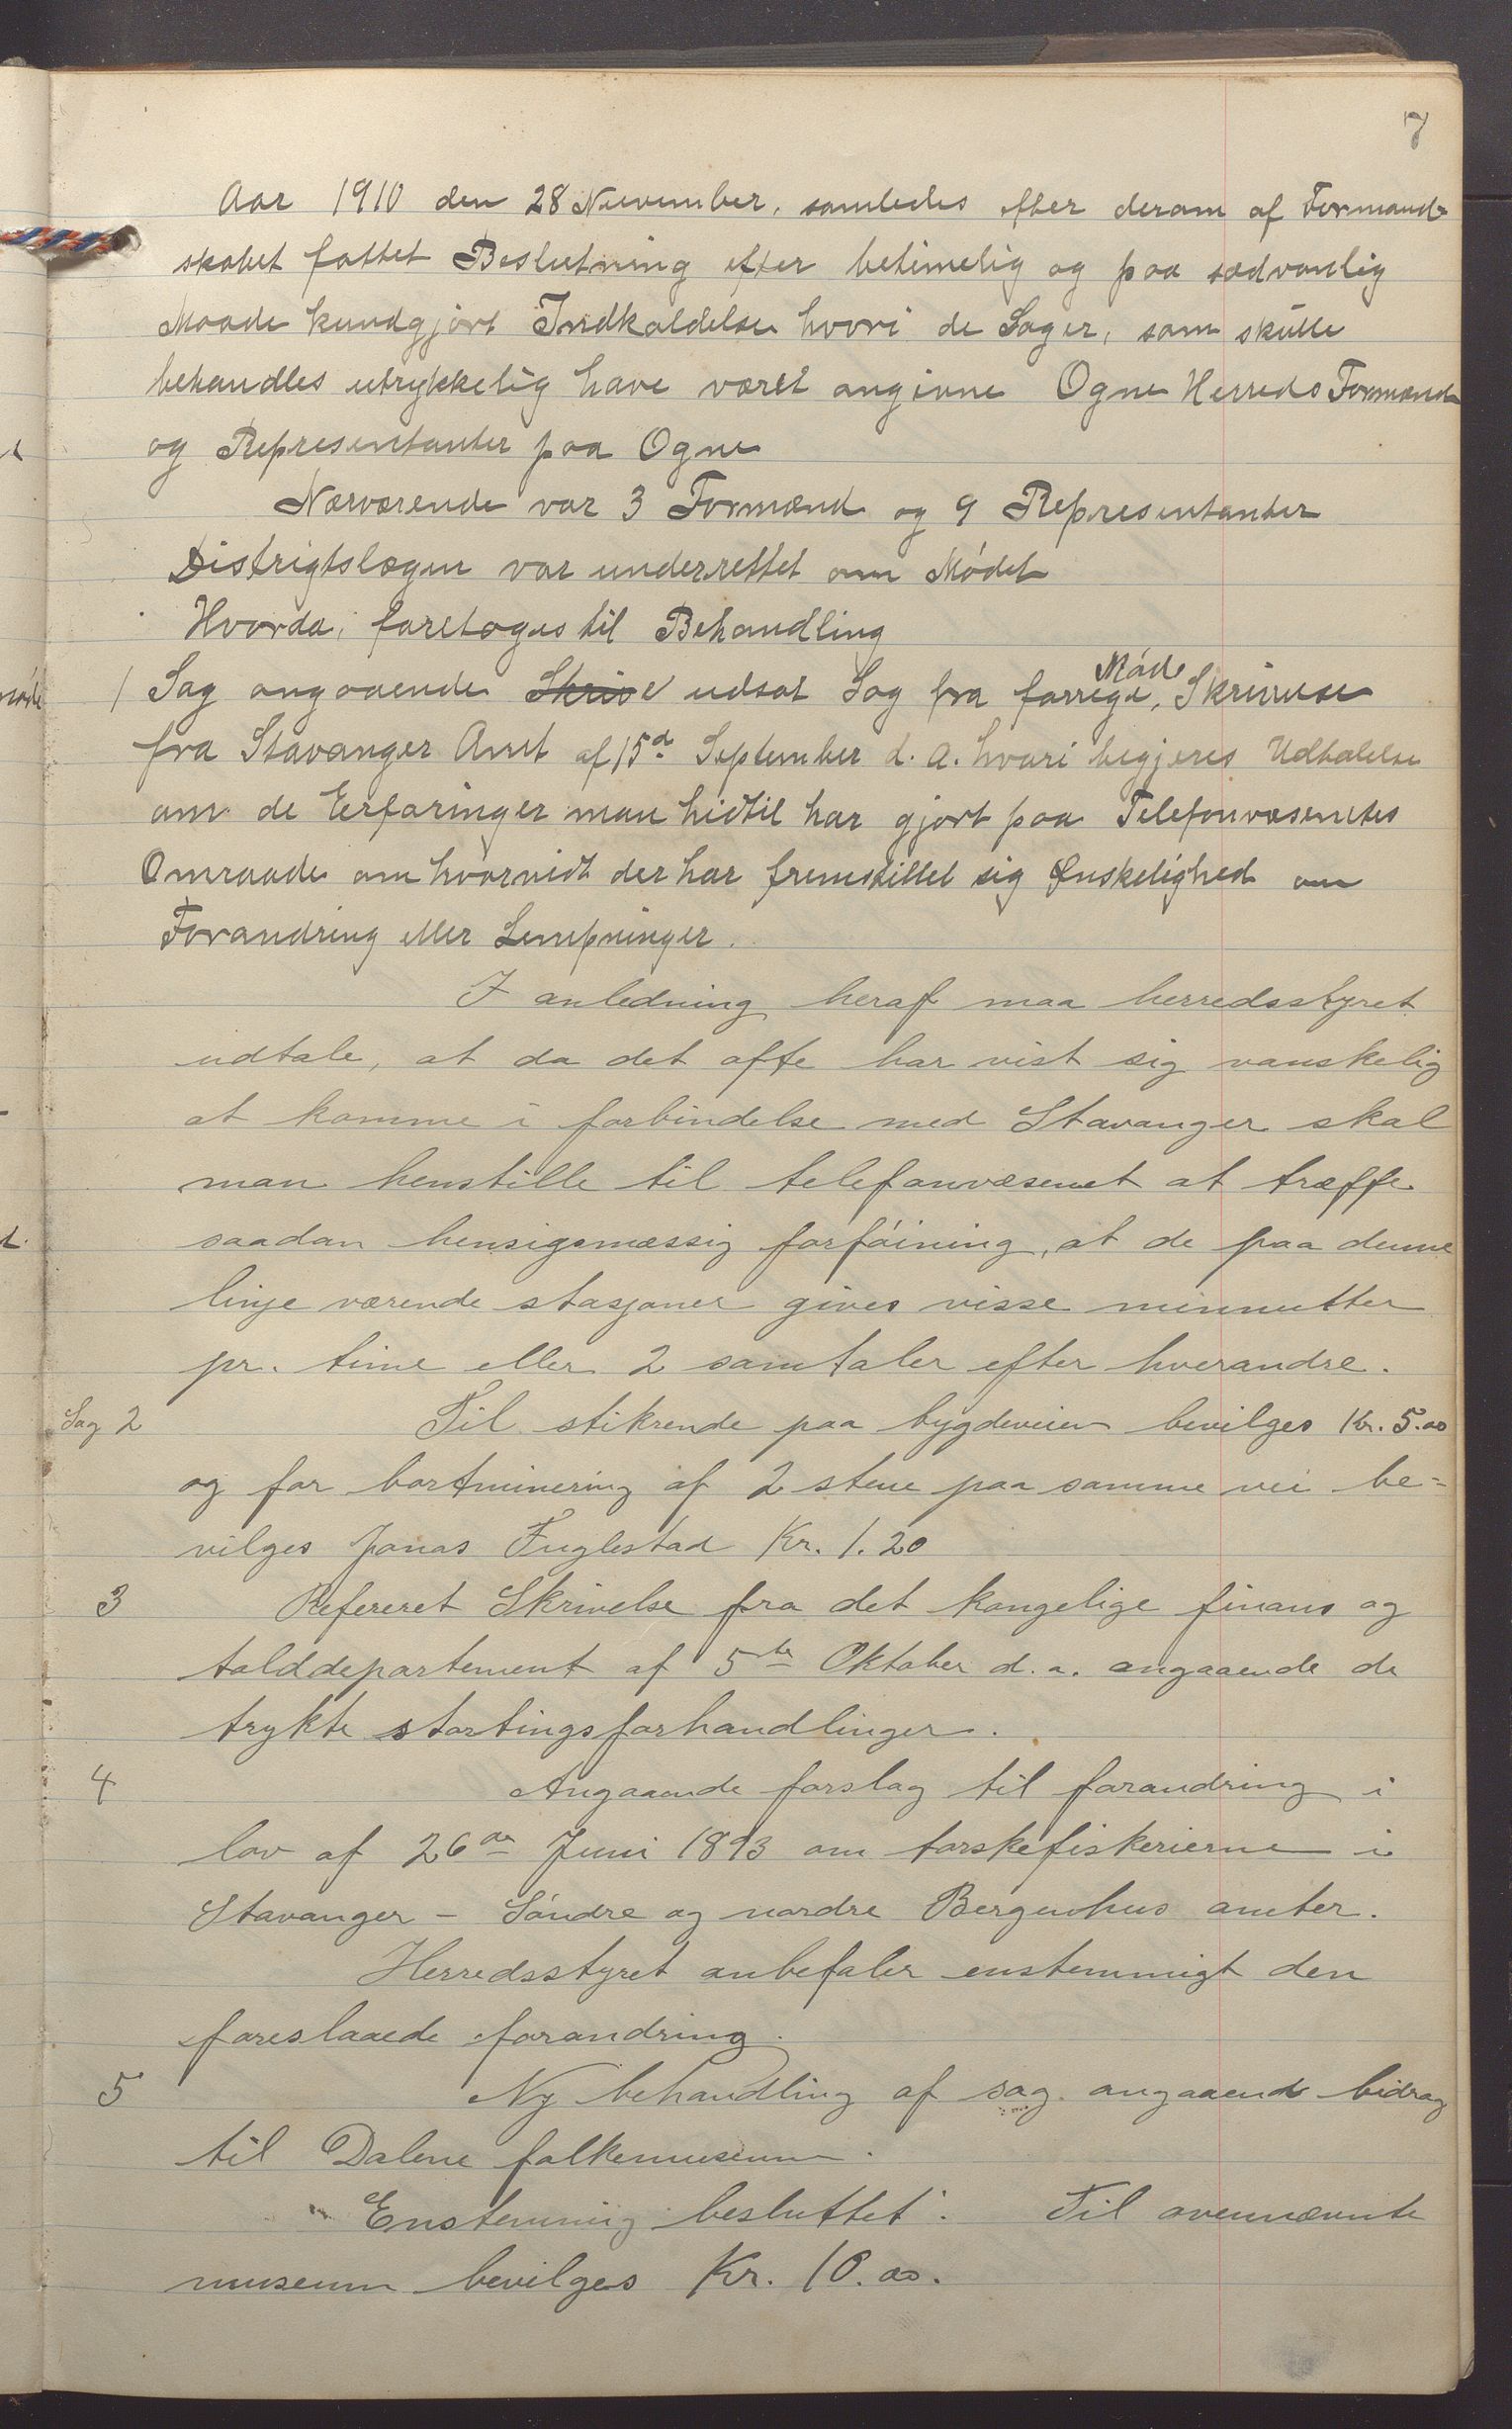 7
Aar 1910 den 28 November, samledes efter derom af Formand-
skabet fattet Beslutning efter betimelig og paa sædvanlig
Maade kundgjort Indkaldelse hvori de Sager, som skulle
behandles utrykkelig have været angivne Ogne Herreds Formænd
og Representanter paa Ogne
Nærværende var 3 Formænd og 9 Representanter
Distrigtslægen var underrettet om Mødet
Hvorda, foretoges til Behandling
1 Sag angaaende udsat Sag fra forrige Møde, Skrivelse
fra Stavanger Amt af 15de September d. a. hvori begjeres Udtalelse
om de Eerfaringer man hidtil har gjort paa Telefonvæsenetes
Omraade om hvorvidt der har fremstillet sig Ønskelighed om
Forandring eller Lempninger.
I anledning heraf maa herredsstyret
udtale, at da det ofte har vist sig vanskelig
at komme i forbindelse med Stavanger skal
man henstille til telefonvæsenet at træffe
saadan hensigsmæssig forføining, at de paa denne
linje værende stasjoner gives visse minnutter
pr. time eller 2 samtaler efter hverandre.
Sag 2 Til stikrende paa bygdeveien bevilges Kr. 5.00
og for bortminering af 2 stene paa samme vei be=
vilges Jonas Fuglestad Kr. 1.20
3 Refereret Skrivelse fra det kongelige finans og
tolddepartement af 5te Oktober d. a. angaaende de
trykte stortingsforhandlinger.
4 Angaaende forslag til forandring i
lov af 26de Juni 1893 om torskefiskerierne i
Stavanger - Søndre og nordre Bergenhus amter.
Herredsstyret anbefaler enstemmigt den
foreslaaede forandring.
5 Ny behandling af sag angaaende bidrag
til Dalene folkemuseum.
Enstemmig besluttet: Til ovennævnte
museum bevilges Kr. 10.00.